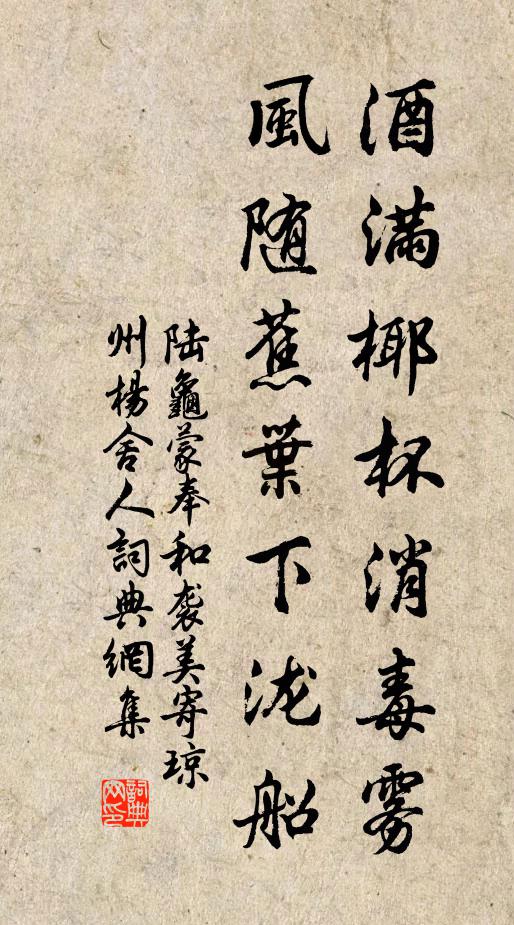 酒满椰杯消毒雾
風随蕉葉下泷船
陆龜蒙奉和袭美寄琼
州楊舍人詞典網集
詞典网印